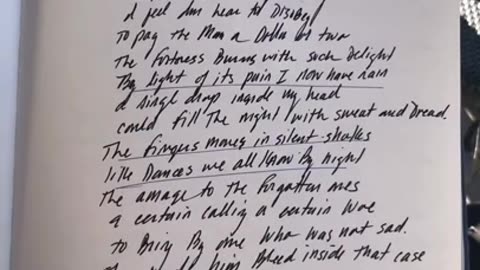 I feel I'm hear to Disobey
To pay the Man a Dolla or two
The fortress Burns with such Delight
By light of its pain I now have rain
a singl drop inside my head
could fill The night with sweat and Dread.
The fingers moves in silent stalks
like Dances we all know By night
The amage to the forgotten ones
a certain calling a certain Woe
to Bring By one Who was not sad.
him Bleed inside that case